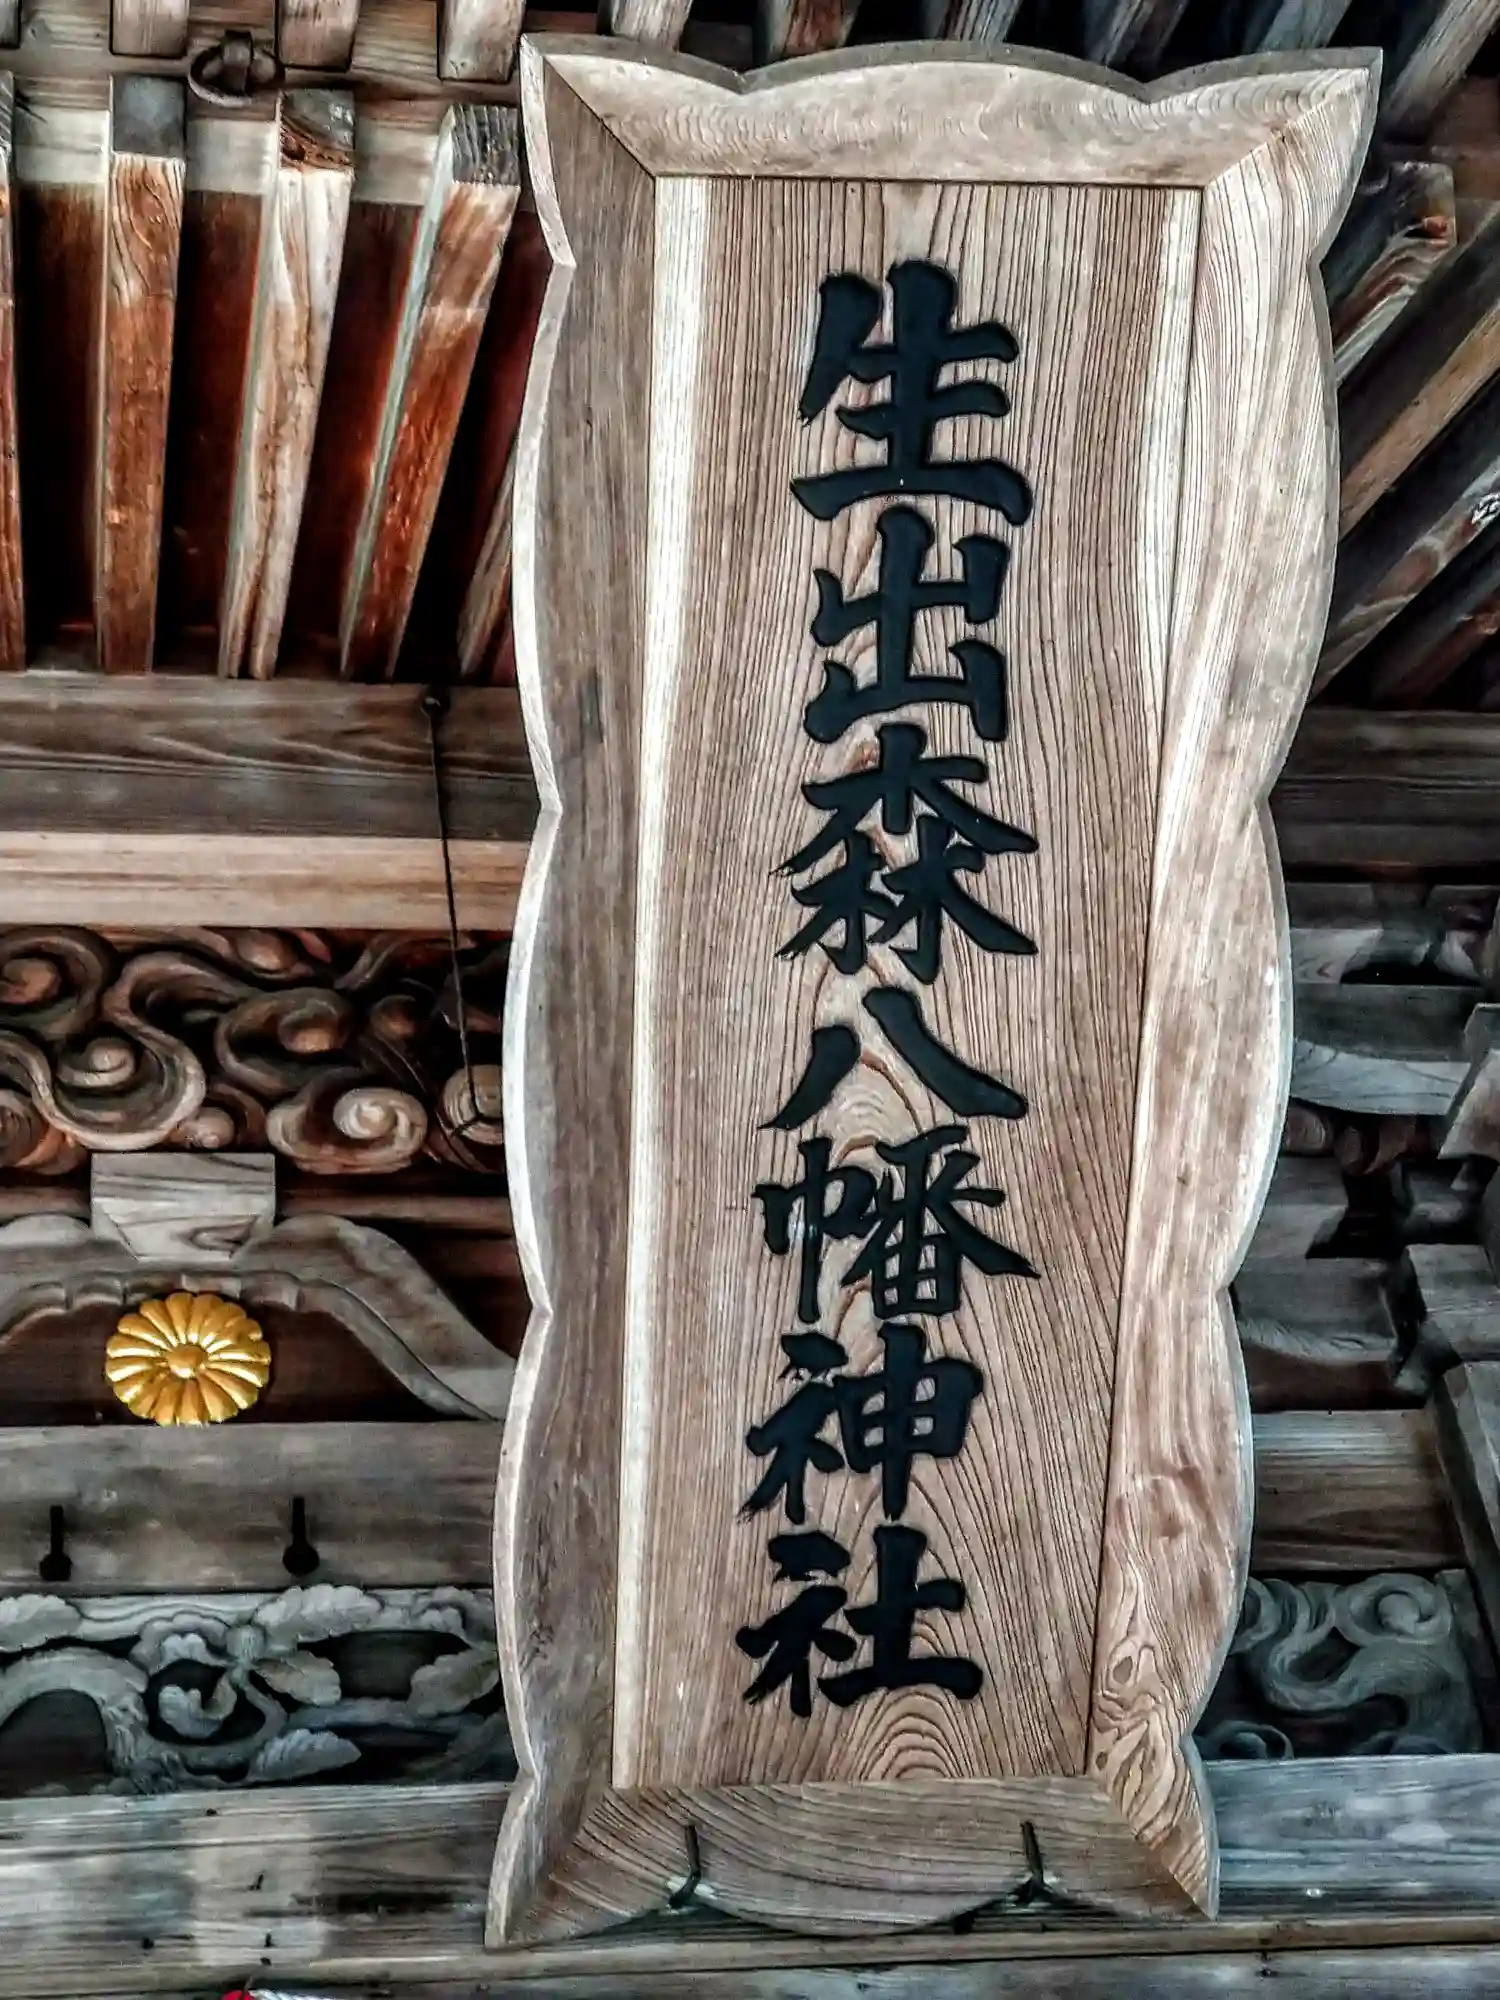 生出森八幡神社